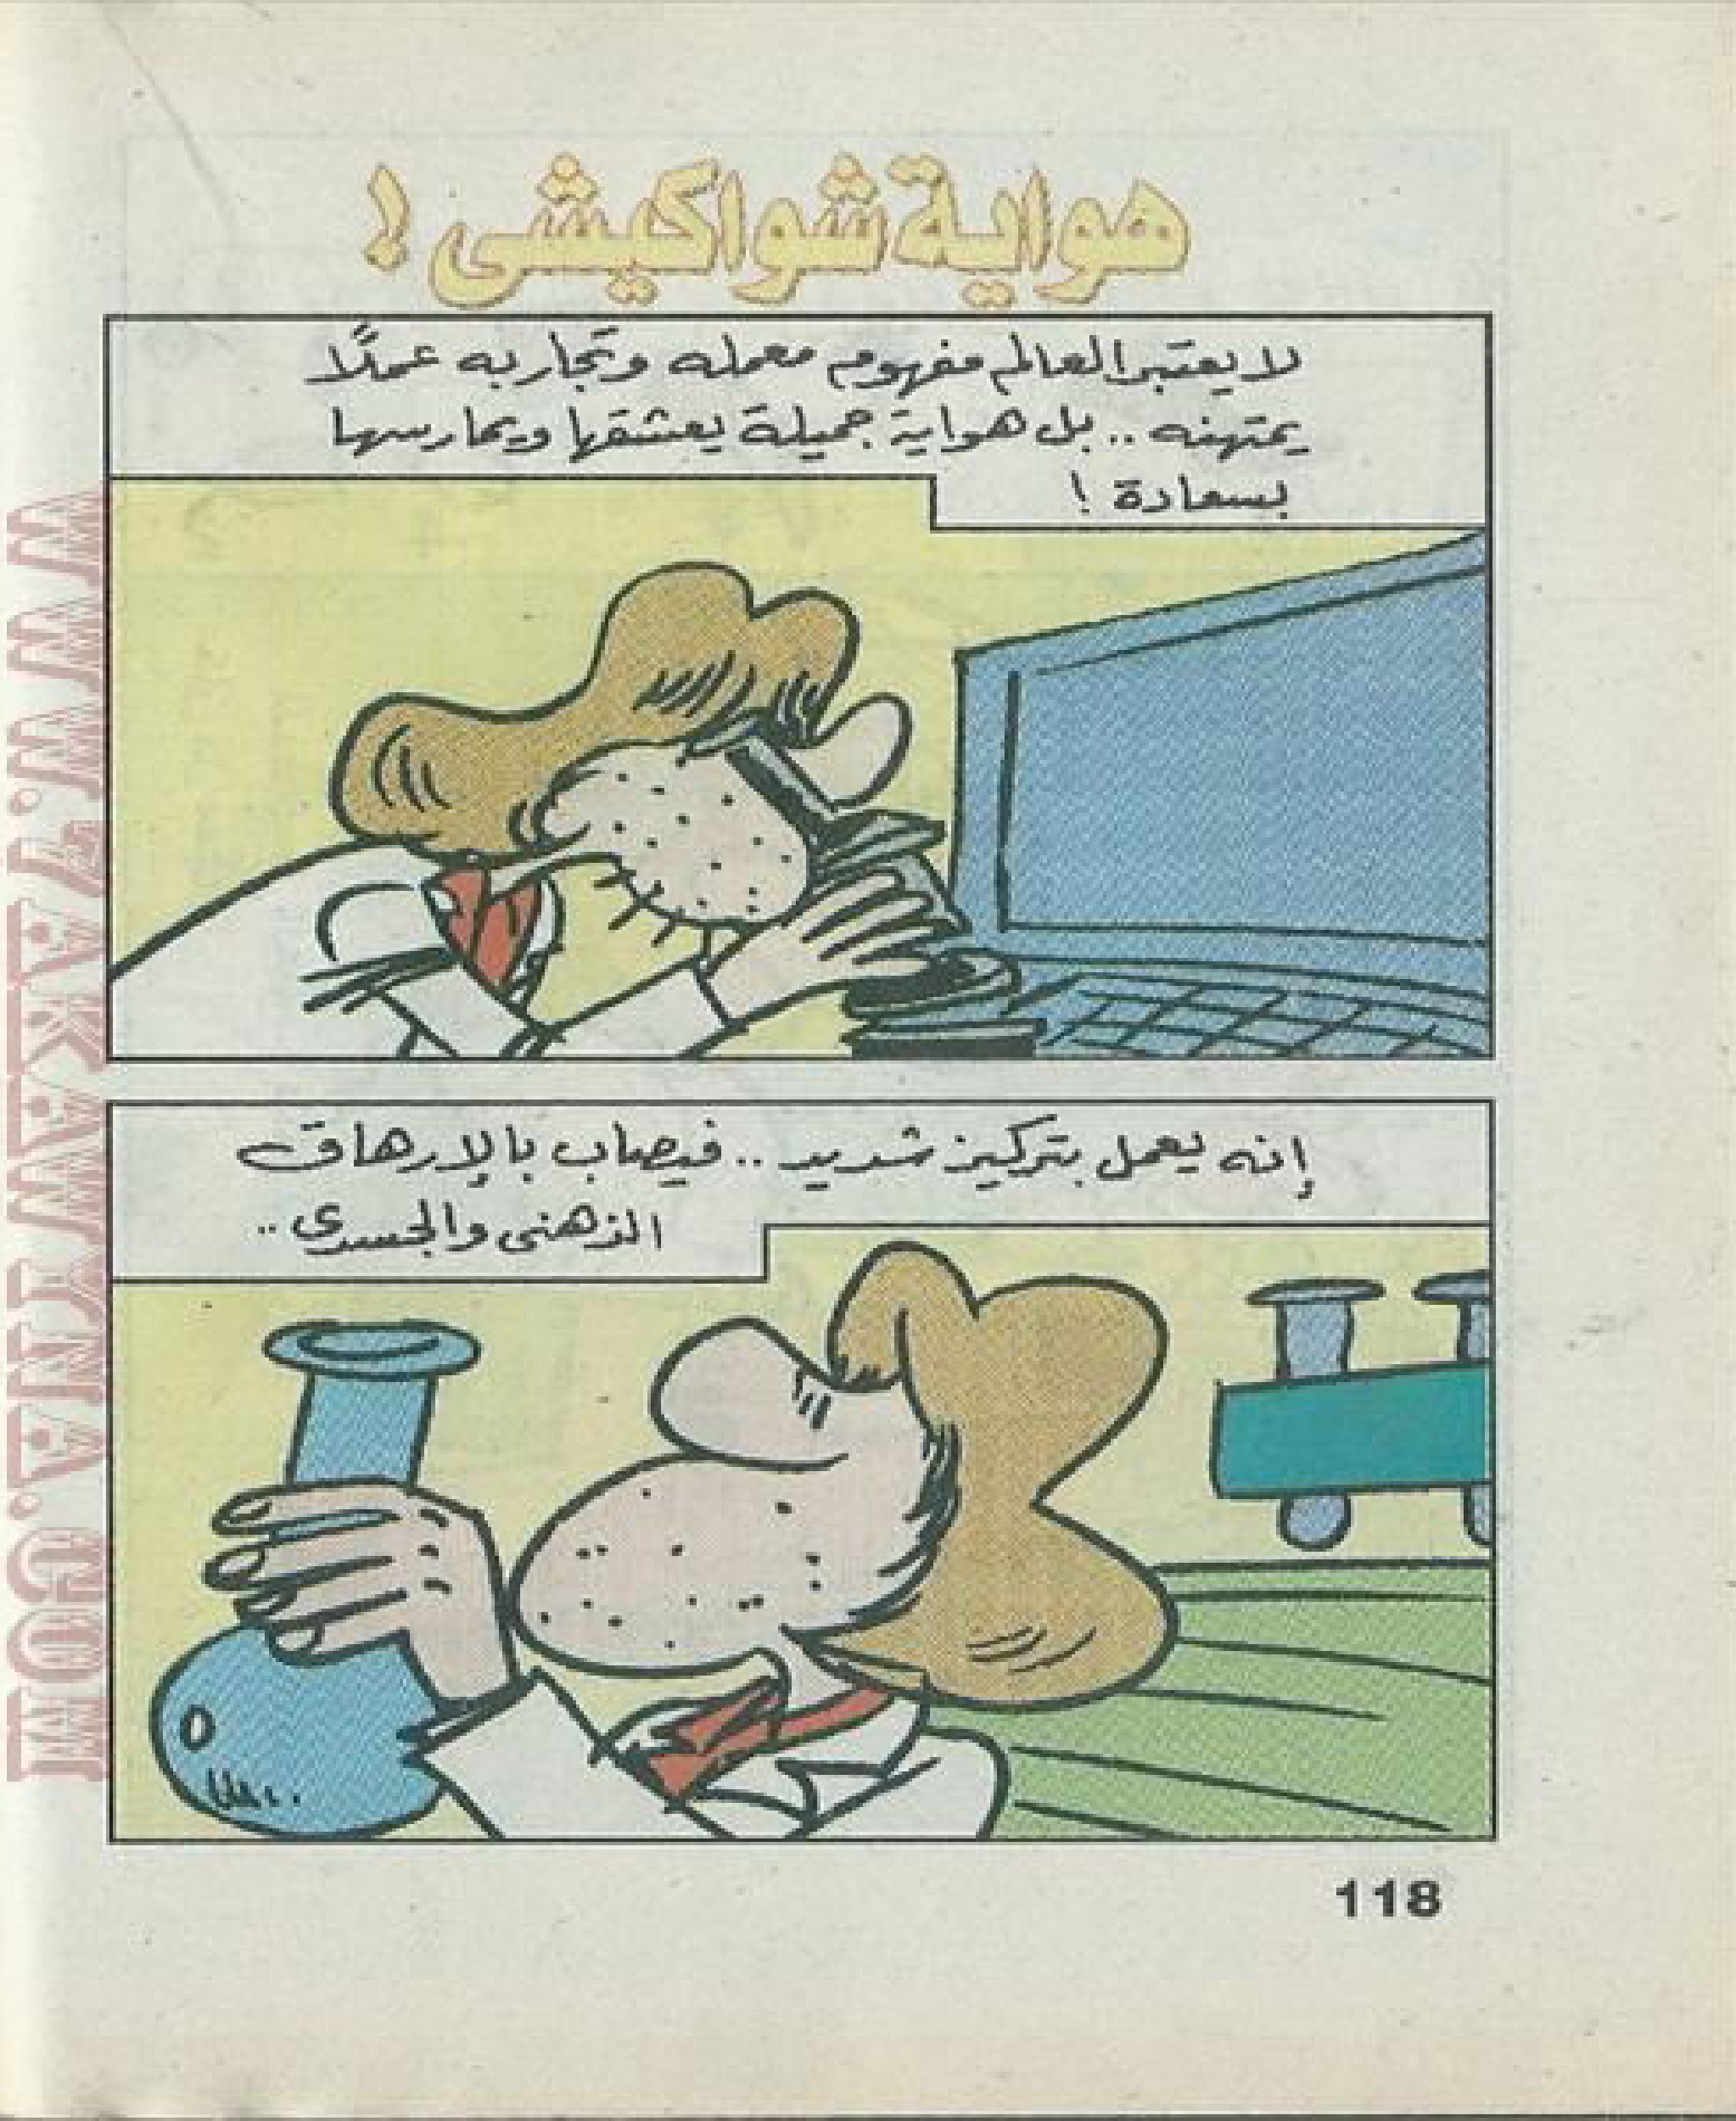 هواية شواكيشى !
لا يعتبر العالم مفهوم معمله وتجاربه عملًا
يمتهنه .. بل هواية جميلة يعشقها ويمارسها
بسعادة !
إنه يعمل بتركيز شديد .. فيصاب بالإرهاق
الذهنى والجسدى ..
118